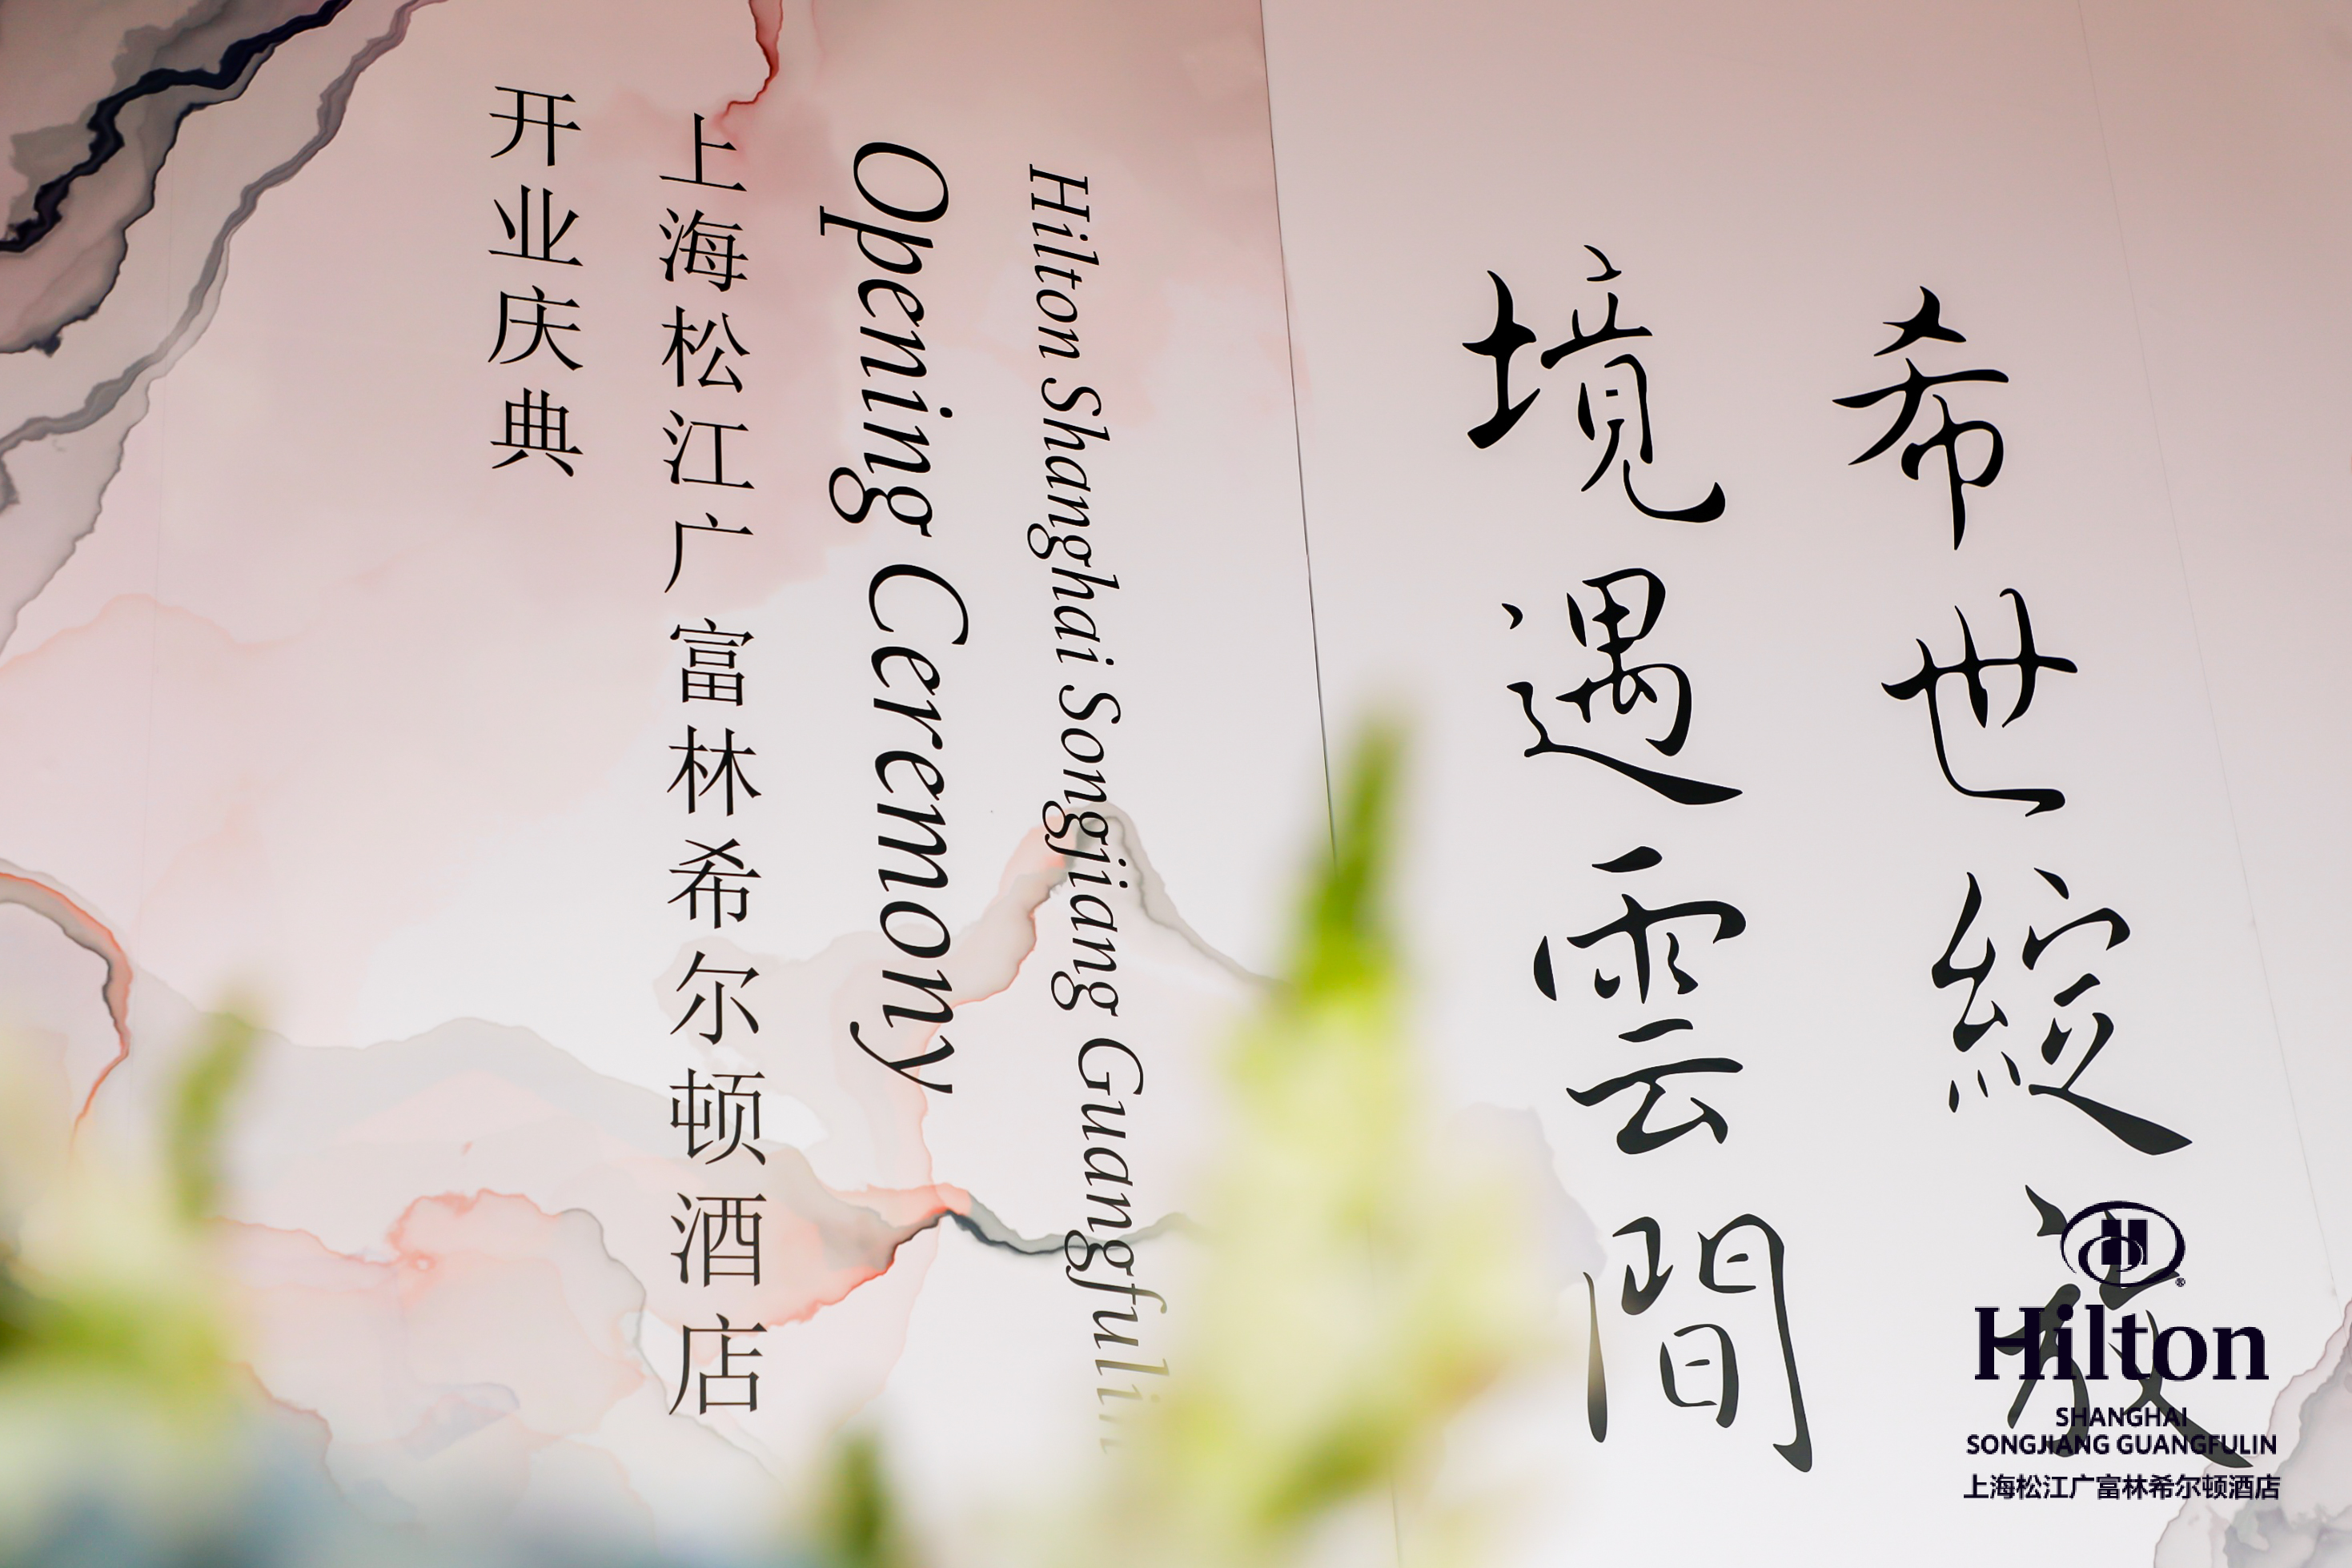 希世綻放
境遇雲間
Hilton Shanghai Songjiang Guangfulin
Opening Ceremony
上海松江广富林希尔顿酒店
开业庆典
Hilton
SHANGHAI
SONGJIANG GUANGFULIN
上海松江广富林希尔顿酒店